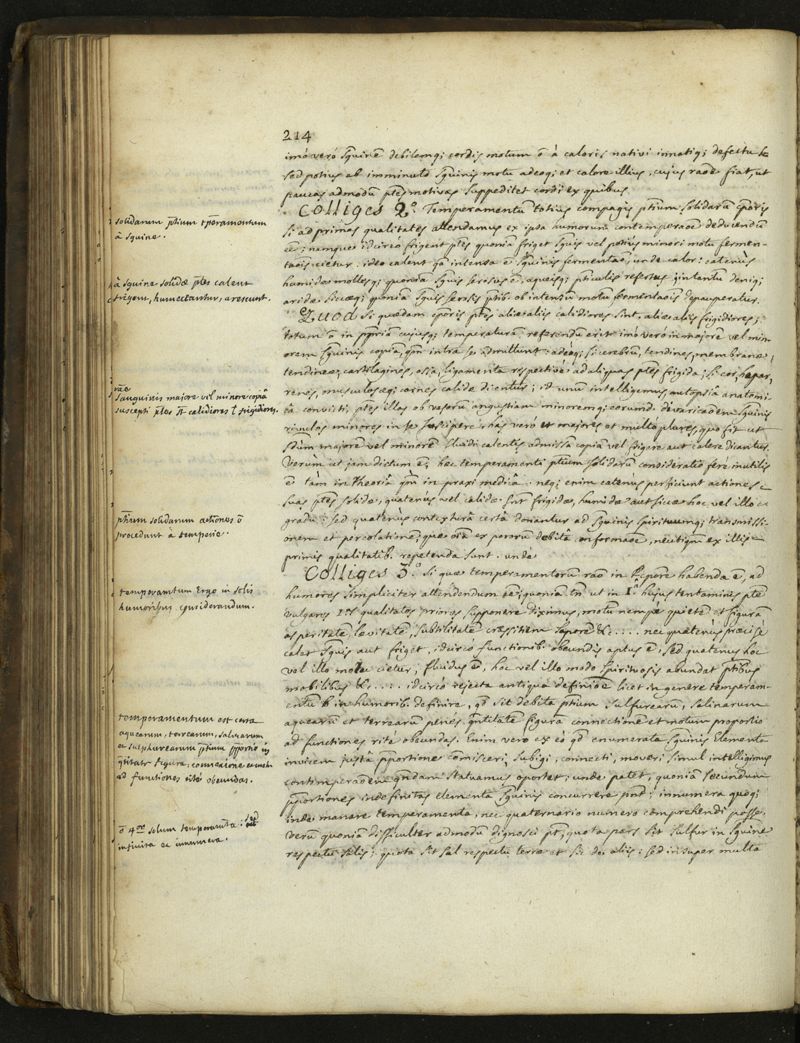 214
imò verò sguinẽ debilemq; cordis motum õ à caloris nativi innatiq; defectu
sed potius ab imminuto sguinis motu adeoq; et calore illius, cujus raoẽ fiat, ut
paucas admodũ ptes motivas suppeditet cordi ex quibus
Colliges 2.º Temperamentũ totius compagis ptium solidarũ cporis
si ad primas qualitates attendamus ex ipsa humorum contemperaoẽ deducendũ
cẽ; namque idcirco frigent ptes quoniã friget sguis vel potius minori motu fermen-
taoĩs cietur. ideo calent qa intensa ẽ sguinis fermentao, unde calor: eatenus
humidæ mollesq; quoniã sguis serosus ẽ, aqueisq; pticulis refertus; intantũ deniq;
aridæ siccæq; quoniã sguis serosis ptib. ob intensũ motũ fermentaoĩs depauperatur.
Quod si quædam cporis ptes aliæ aliis calidiores sint, aliæ aliis frigidiores;
totum õ in ppriã cujusq; temperaturã referendũ erit imò verò in majorẽ vel min
orem sguinis copiã, qm intra se admittunt. adeoq; si cerebrũ, tendines, membranæ,
tendineæ, cartilagines, ossa, ligamenta respectivè ad aliquas ptes frigida; si cor, hepar,
renes, musculosæq; carnes calidæ dicentur; id unũ intelligemus autopsia anatomi
câ convicti, ptes illas ob vasorũ angustiam minoremq; eorund. devaricaõem sguinis
rivulos minores in se suscipere: has verò et majores et multo plures, quo fit ut
sdum majorẽ vel minorẽ fluidi calentis admissã copiã vel frigere aut calere dicantur.
Verùm ut jam dictum ẽ, hæc temperamenti ptium solidarũ consideratio ferè inutilis
ẽ tàm in theoriâ qm in praxi medicâ. neq; enim eatenus perficiunt actiones
suas ptes solidæ, quatenus vel calidæ sunt frigidæ, humidæ aut siccæ hoc vel illo
gradu; sed quatenus contexturâ certâ donantur ad sguinis spirituumq; transmissi
onem et percolationẽ; quæ oia ex pororũ debitâ conformaoẽ, neutiqm ex illis
primis qualitatib. repetenda sunt. unde
Colliges 3.º Si quæ temperamentorũ rao in cpore habenda ẽ, ad
humores simpliciter attendendum ẽ; quoniã tn ut in 1ª hujus tentaminis pte
vulgares 1as qualitates priores supponere diximus, motũ nempe quietẽ et figurã
asperitatẽ, levitatẽ, subtilitatẽ crassitiem saporẽ &c..... nec quatenus præcisè
calet sguis aut friget, idcirco functionib. obeundis aptus ẽ, sed quatenus hoc
vel illo motu cietur, fluidus ẽ, hoc vel illo modo spirituosis abundat ptibus
mobilibus &c..... idcirco rejecta antiquâ definioẽ licet in genere temperam-
entũ in humorib. definire, qd sit debita ptium, sulfurearũ, salinarum
aquearũ et terrearũ penes qntitatẽ figurã connectionẽ et motum proportio
ad functiones ritè obeundas. Enim verò ex eo qd enumerata sguinis elementa
invicem justa pportione comisceri, subigi, connecti, moveri, simul intelligimus
contemperaõem qndam statuamus oportet; unde patet, quoniã secundum
pportiones indefinitas elementa sguinis concurrere pñt; innumera quoq;
inde manare temperamenta, nec quaternario numero comprehendi posse.
Verũ quoniã difficulter admodũ dignosci pt, quota pars sit sulfur in sguine
respectu salis; quota sit sal respectu terræ et sic de aliis: sed insuper multa
solidarum ptium tperamentum
à sguine.
à sguine solidæ ptes calent
frigent, humectantur, arescunt.
rãe
sanguinis majore vel minore copiâ
suscepti ptes st calidiores l frigidiores.
ptium solidarum actiones õ
procedunt à temperie.
temperamtum ergo in solis
humoribus considerandum.
temperamentum est certa
aquearum, terrearum, salinarum
et sulphurearum ptium pportio in
qtitate figura, connexione et motu
ad functiones ritè obeundas.
õ 4or solum temperamta: sed
infinita et innumera.